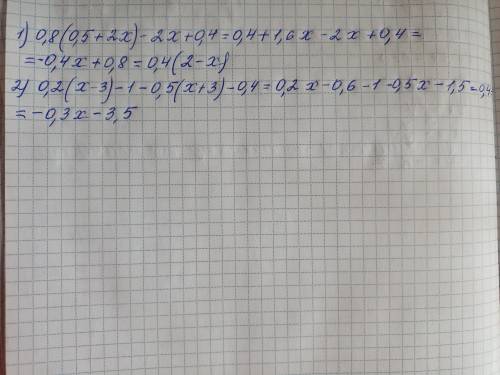 1) 0,8(0,5+2x)-2x+0,4=0,4+1,6x-2x+0,4=
=-0,4x+0,8=0,4(2-x)
2) 0,2(x-3)-1-0,5(x+3)-0,4=0,2x-0,6-1-0,5x-1,5=0,4
=-0,3x-3,5